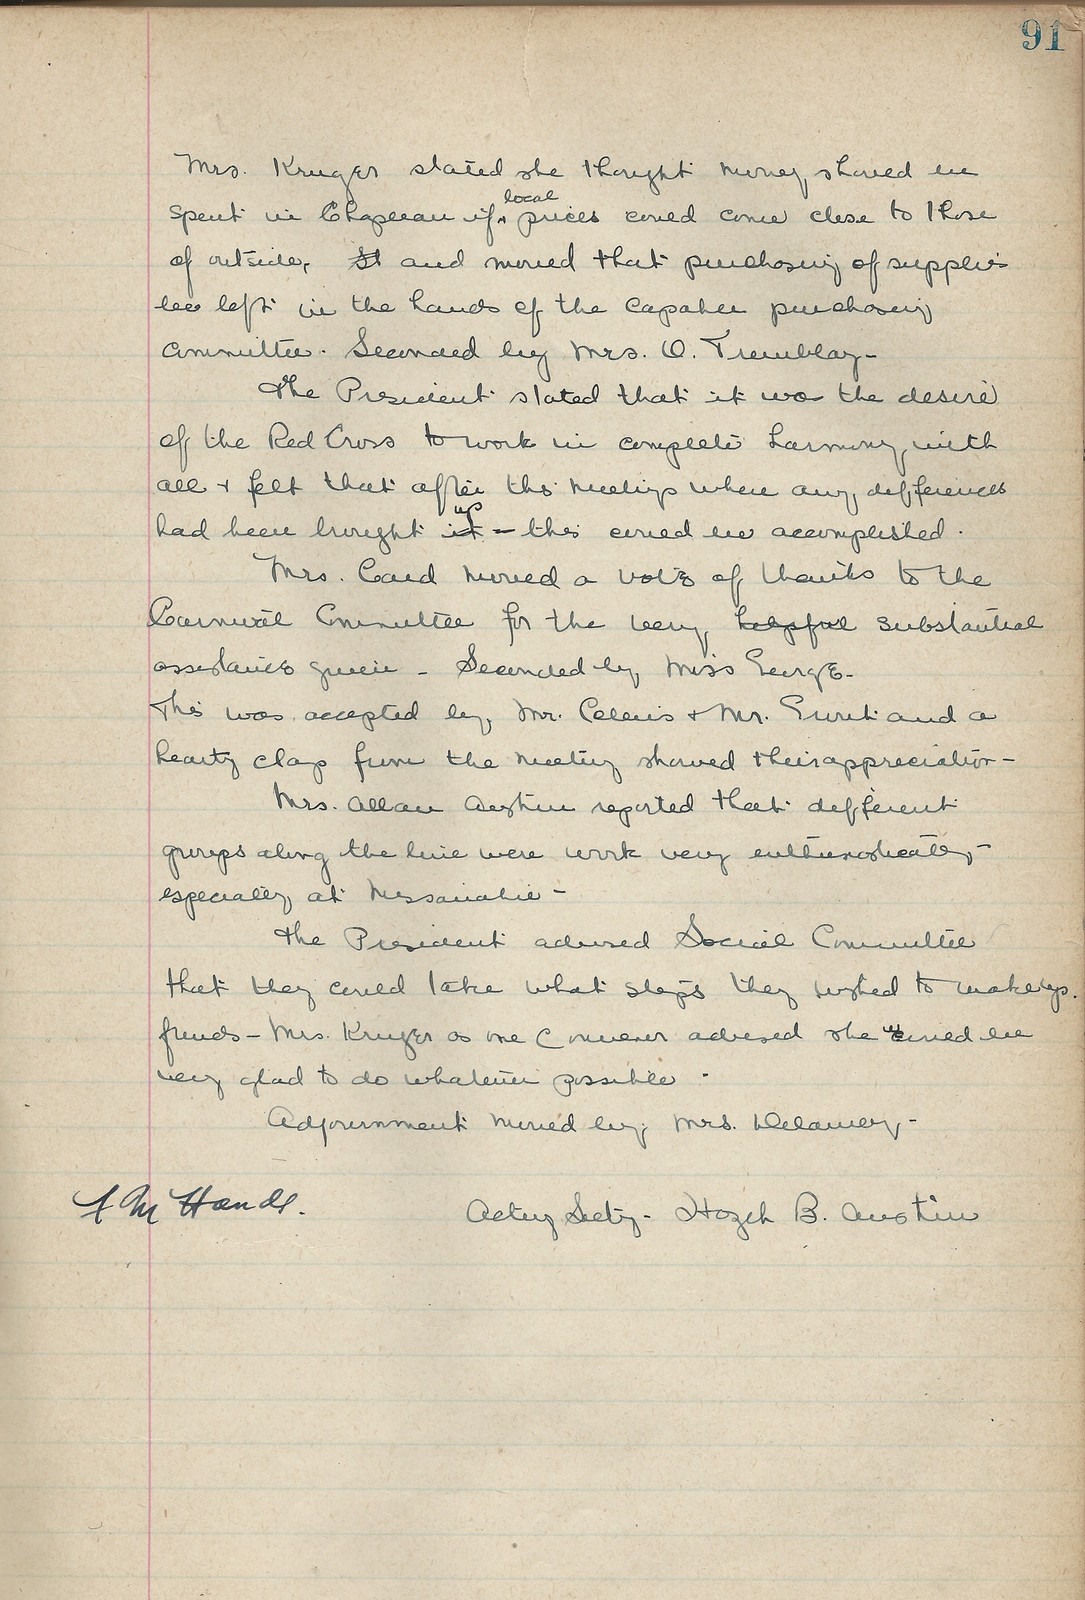 91
Mrs. Kruger stated she thought money should be
local
spent in Chapleau if prices could come close to those
of outside, and moved that purchasing of supplies
be left in the hands of the capable purchasing
committee. Seconded by Mrs. O. Tremblay -
The President stated that it was the desire
of the Red Cross to work in complete harmony with
all + felt that after this meetings where any differences
up
had been brought it - this could be accomplished.
Mrs. Card moved a vote of thanks to the
Carnival Committee for the very helpful substantial
assistance given - Seconded by Miss George -
This was accepted by Mr. + Mr. and a
hearty clap from the meeting showed their appreciation -
Mrs. Allan Austin reported that different
groups along the line were work very enthusiastically -
especially at Missanabie -
The President advised Social Committee
that they could take what steps they wished to make up
funds - Mrs. Kruger as one Convener advised she would be
very glad to do whatever possible.
Adjournment moved by Mrs. Delaney -
Acting Secty - B. Austin